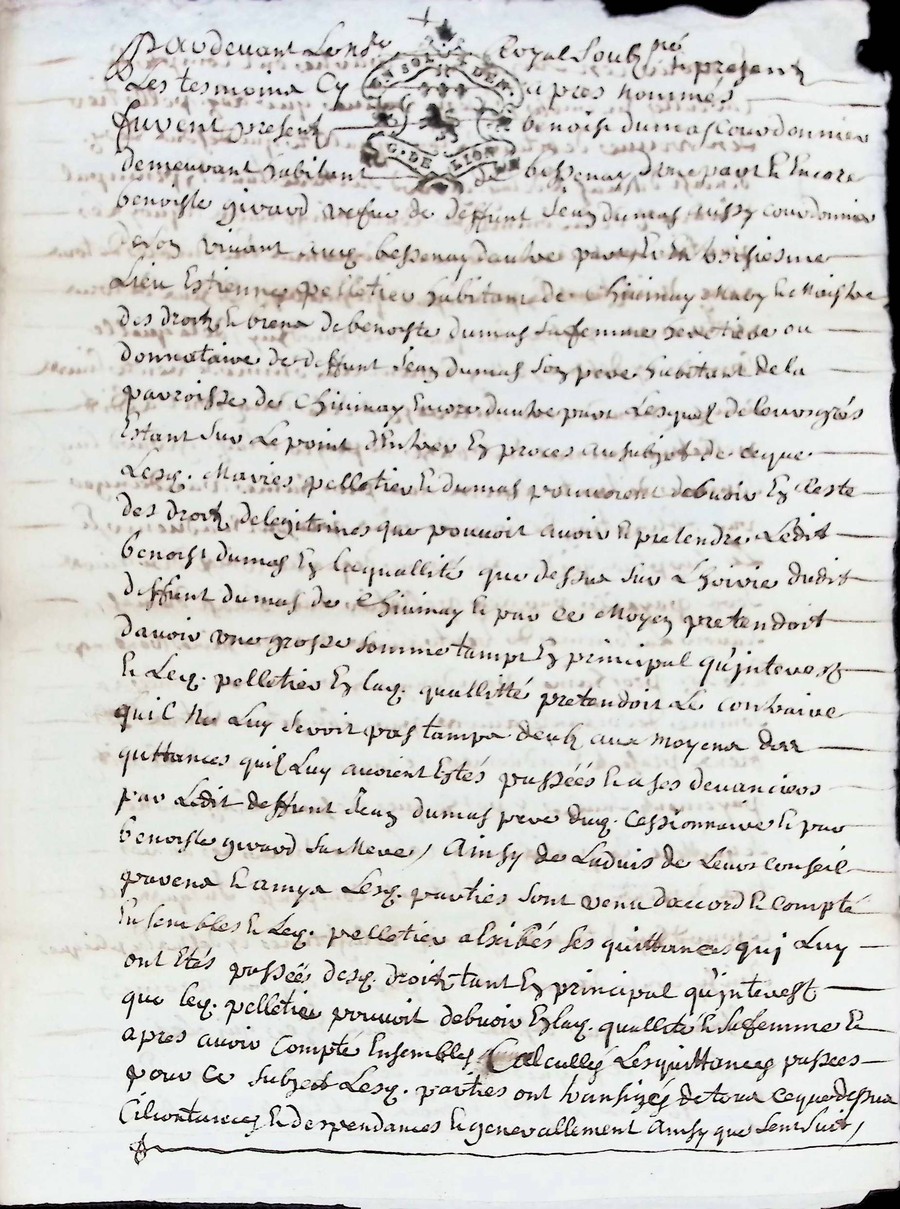 Pardevant Le no.re Royal Soub.né & present
Les tesmoins Cy apres nommés
furent present benoist dumas Courdonnier
demeurant habitant de bessenay d'une part & Encore
benoiste girard vefue de deffunt Jean dumas aussy courdonnier
de son vivant audict bessenay dautre part & En troisiesme
Lieu Estienne pelletier habitant de Chivinay Mary & Maistre
des droits & biens de benoiste dumas sa femme heretiere ou
donnataire de deffunt Jean dumas son pere habitant de la
parroisse de Chivinay Encore dautre part Lesquels de leurs grés
Estant sur Le point d'Entrer En proces au subjet de ceque
Lesq. Mariés pelletier & dumas pouvoient debvoir En Reste
des droits de legitimes que pouvoit avoir & pretendre Ledit
benoist dumas En la quallité que dessus sur L'hoirie dudit
deffunt dumas de Chivinay & par ce Moyen pretendoit
davoir une grosse somme tampt En principal qu'jnterest
& Leq. pelletier En laq. quallitté pretendoit Le contraire
quil Ne Luy devoit pas tampt deub aux moyens des
quittances quil Luy avoient Estés passéés & a ses devanciers
par Ledit deffunt Jean dumas pere duq. Cessionnaire & par
benoiste girard sa Mere / Ainsy de Ladvis de Leurs Conseil
parens & amys Lesq. parties sont venu daccord & Compté
Ensembles & Leq. pelletier a Exibés ses quittances quj Luy
ont Etés passéés desq. droits tant En principal qu'jnterest
que leq. pelletier pouvoit debvoir En laq. quallité & sa femme &
apres avoir Compté Ensembles Calcullés Les quittances passees
pour Ce Subjet Lesq. parties ont transigés de tous ceque dessus
Cirontances & despendances & generallement Ainsy que sensuit /
EN SOL
G. DE LION